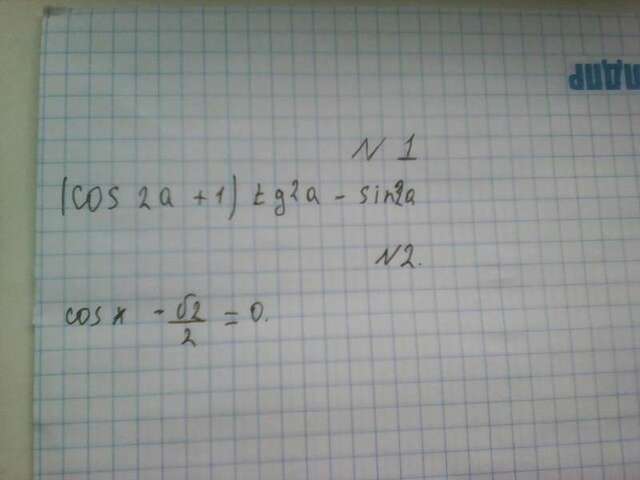 ЛДПР
N 1
(cos 2a + 1) tg²a - sin²a
N2.
cos x - √2/2 = 0.